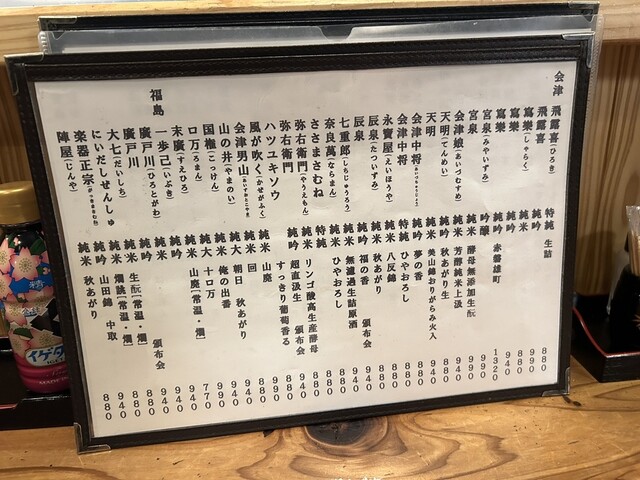 会津
飛露喜(ひろき) 特純 生詰 880
飛露喜 純吟 990
寫樂(しゃらく) 純米 880
寫樂 純吟 940
寫樂 純吟 赤磐雄町 1320
宮泉(みやいずみ) 吟醸 990
宮泉 純米 酵母無添加生酛 990
会津娘(あいづむすめ) 純米 芳醇純米上汲 940
天明(てんめい) 純吟 秋あがり生 880
天明 純米 美山錦おりがらみ火入 940
会津中将(あいづちゅうじょう) 純吟 夢の香 880
会津中将 特純 ひやおろし 880
永寶屋(えいほうや) 純米 八反錦
辰泉(たついずみ) 純米 秋あがり
辰泉 純吟 福の香 頒布会
七重郎(しちじゅうろう) 純米 無濾過生詰原酒
奈良萬(ならまん) 純米 ひやおろし
ささまさむね 特純
弥右衛門(やうえもん) 純米 リンゴ酸高生産酵母
弥右衛門 純吟 超直汲生 頒布会
ハツユキソウ すっきり葡萄香る
風が吹く(かぜがふく) 純米 山廃
会津男山(あいづおとこやま) 純米 回
山の井(やまのい) 純大 朝日 秋あがり
国権(こっけん) 純米 俺の出番
ロ万(ろまん) 純大 十ロ万 770
末廣(すえひろ) 純米 山廃[常温・燗]
福島
一歩己(いぶき) 純米 940
廣戸川(ひろとがわ) 純吟 頒布会
廣戸川 純米 880
大七(だいしち) 純米 生酛[常温・燗] 880
にいだしぜんしゅ 純米 燗誂[常温・燗] 940
楽器正宗(がっきまさむね) 純吟 山田錦 中取 940
陣屋(じんや) 純米 秋あがり 880
イゲタ